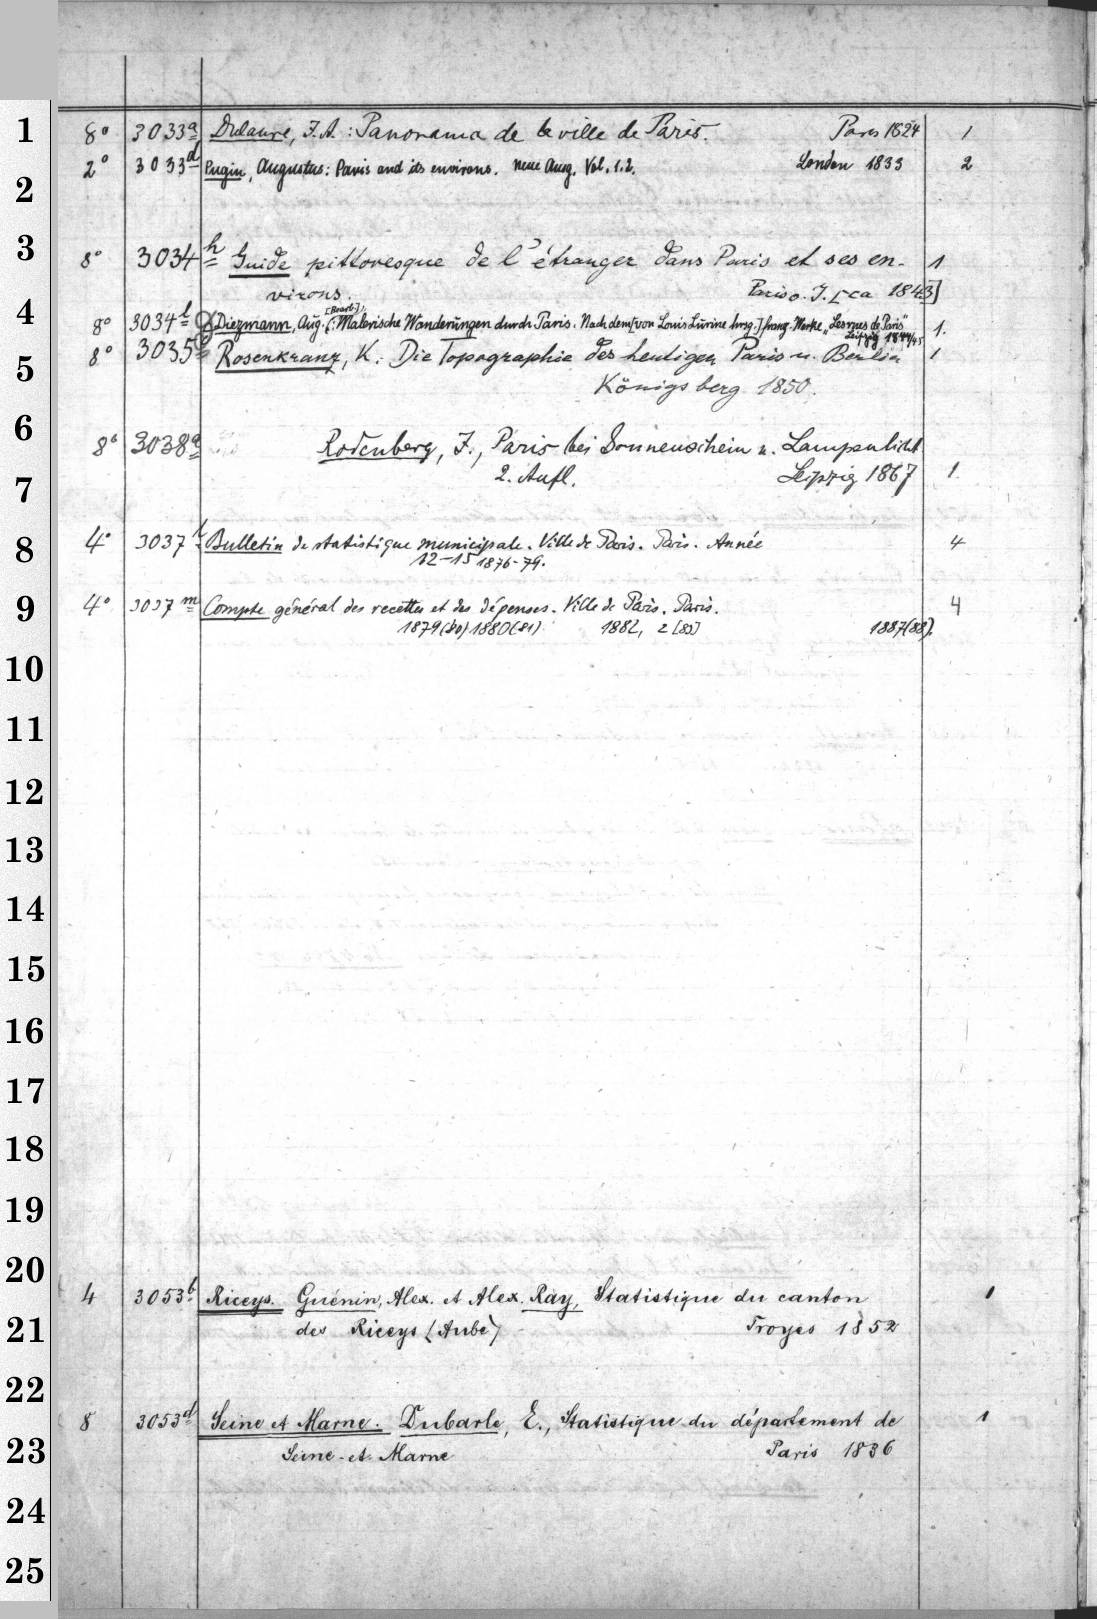 1 8° 3033a Dulaure, J. A.: Panorama de la ville de Paris. Paris 1824 1
2° 3033d Pugin, Augustus: Paris and its environs. Neue Ausg. Vol. 1.2. London 1833 2
2
3 8° 3034h Guide pittoresque de l'étranger dans Paris et ses en- 1
virons. Paris o. J. [ca 1843]
4 8° 3034l Diezmann, Aug. [Bearb.]: Malerische Wanderungen durch Paris. Nach dem [von Louis Lurine hrsg.] franz. Werke „Les rues de Paris" 1.
Leipzig 1844/45
8° 3035g Rosenkranz, K.: Die Topographie des heutigen Paris u. Berlin 1
5
Königsberg 1850.
6 8° 3038a Rodenberg, J., Paris bei Sonnenschein u. Lampenlicht
7 2. Aufl. Leipzig 1867 1.
8 4° 3037l Bulletin de statistique municipale. Ville de Paris. Paris. Année 4
12-15 1876-79.
9 4° 3037m Compte général des recettes et des dépenses. Ville de Paris. Paris. 4
1879(80) 1880(81) 1882, 2 [83] 1887(88).
10
11
12
13
14
15
16
17
18
19
20
4 3053b Riceys. Guénin, Alex. et Alex. Ray, Statistique du canton 1
21 des Riceys (Aube) Troyes 1852
22
8 3053d Seine et Marne. Dubarle, E., Statistique du département de 1
23 Seine-et-Marne Paris 1836
24
25